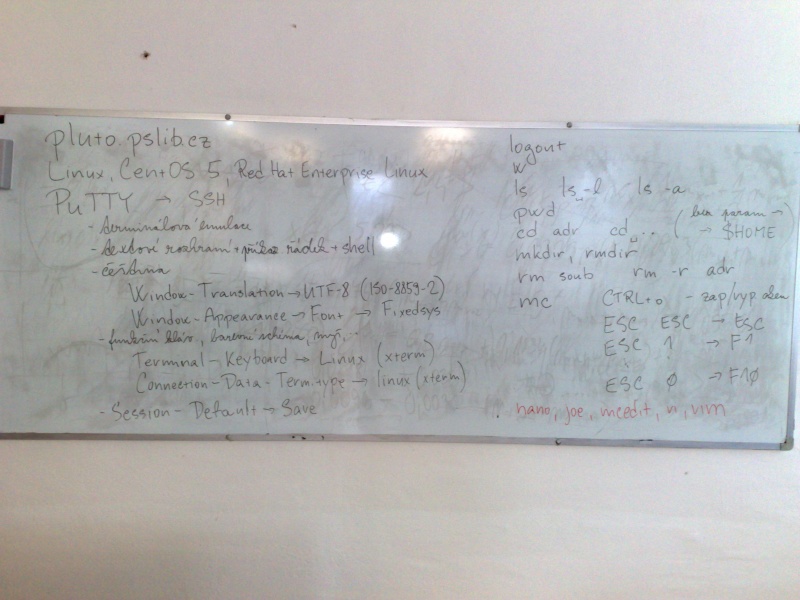 pluto.pslib.cz
Linux, CentOS 5, Red Hat Enterprise Linux
PuTTY → SSH
- terminálová emulace
- textové rozhraní + příkaz. řádek + shell
- čeština
Window - Translation → UTF-8 (ISO-8859-2)
Window - Appearance → Font → Fixedsys
- funkční kláv., barevné schéma, myš, ...
Terminal - Keyboard → Linux (xterm)
Connection - Data - Term.type → linux (xterm)
- Session - Default → Save
logout
w
ls ls -l ls -a
pwd
cd adr cd .. (bez param →) → $HOME
mkdir, rmdir
rm soub rm -r adr
mc CTRL+o - zap/vyp
ESC ESC → ESC
ESC 1 → F1
ESC 0 → F10
nano, joe, mcedit, vi, vim